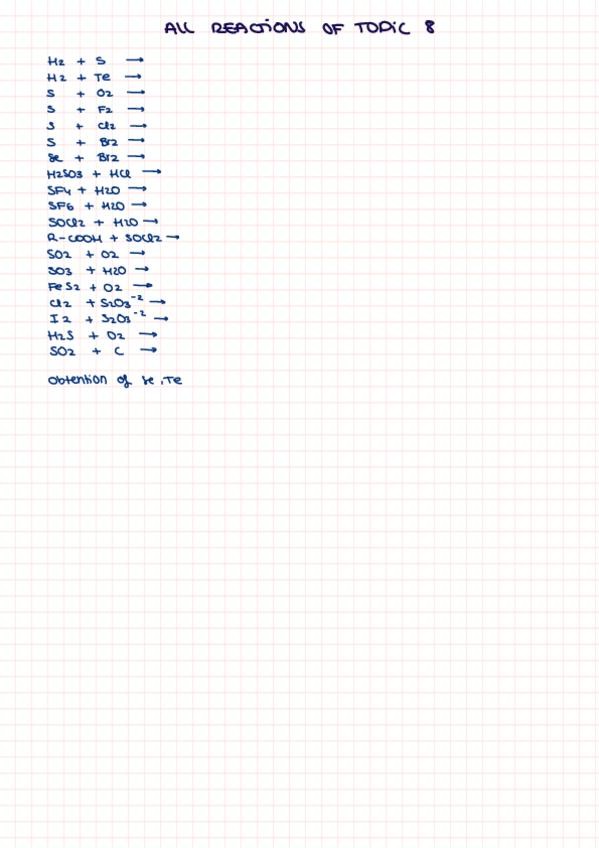 ALL REACTIONS OF TOPIC 8
H2 + S →
H2 + Te →
S + O2 →
S + F2 →
S + Cl2 →
S + Br2 →
Se + Br2 →
H2SO3 + HCl →
SF4 + H2O →
SF6 + H2O →
SOCl2 + H2O →
R-COOH + SOCl2 →
SO2 + O2 →
SO3 + H2O →
FeS2 + O2 →
Cl2 + S2O3⁻² →
I2 + S2O3⁻² →
H2S + O2 →
SO2 + C →
Obtention of Se, Te